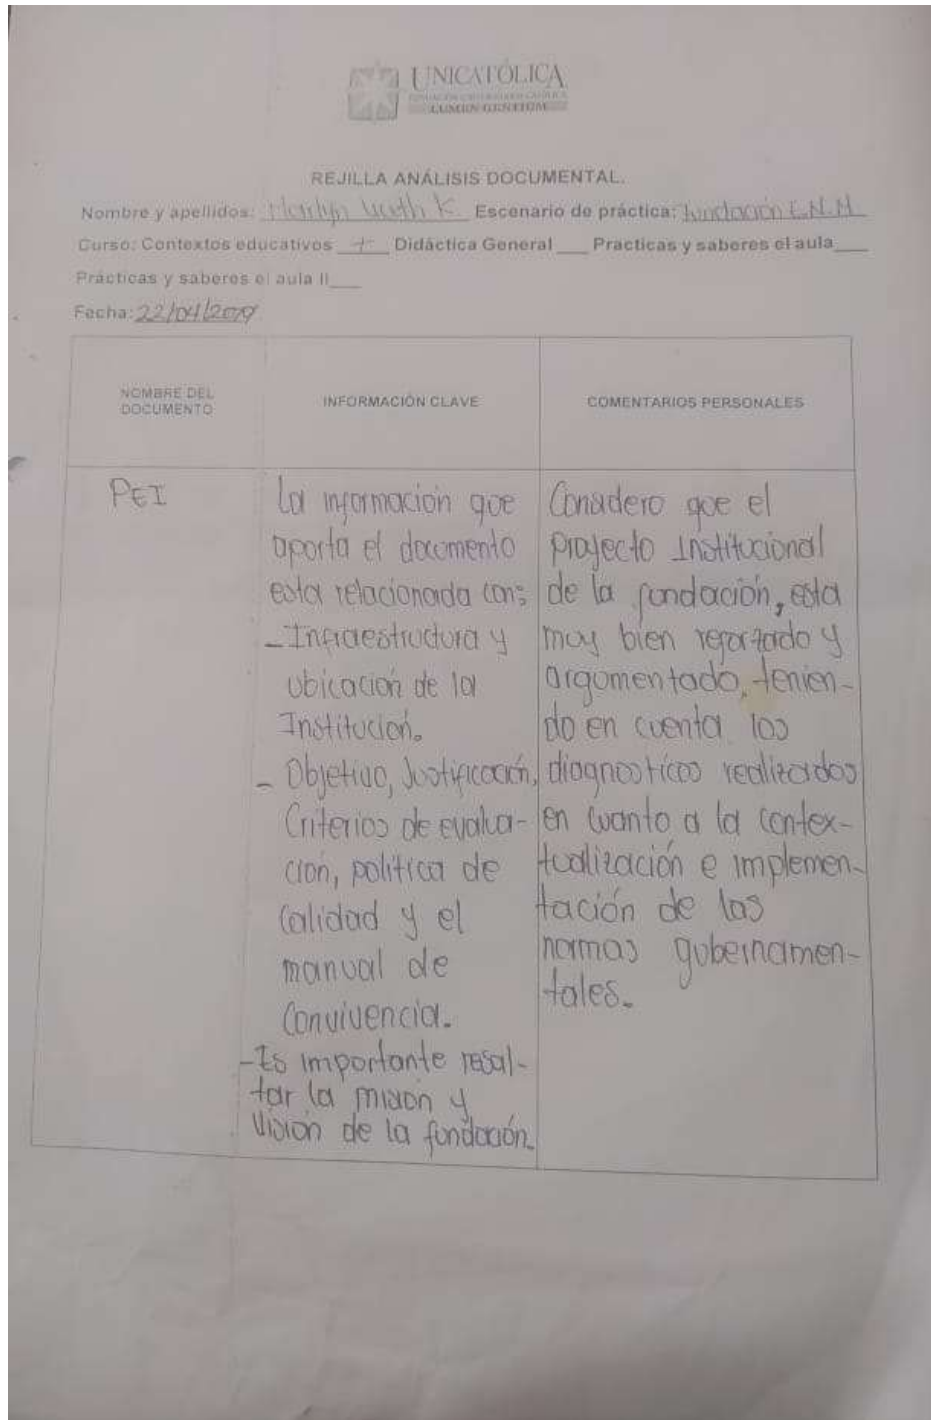 UNICATÓLICA
FUNDACIÓN UNIVERSITARIA CATÓLICA
LUMEN GENTIUM
REJILLA ANÁLISIS DOCUMENTAL.
Nombre y apellidos: K. Escenario de práctica: fundación E.N.M
Curso: Contextos educativos + Didáctica General Practicas y saberes el aula
Prácticas y saberes el aula II
Fecha: 22/04/2019
NOMBRE DEL
DOCUMENTO
INFORMACIÓN CLAVE
COMENTARIOS PERSONALES
PEI
La información que
aporta el documento
esta relacionada con:
- Infraestructura y
ubicación de la
Institución.
- Objetivo, Justificación,
Criterios de evalua-
ción, politica de
Calidad y el
manual de
Convivencia.
- Es importante resal-
tar la misión y
Visión de la fundación.
Considero que el
proyecto Institucional
de la fundación, esta
muy bien reforzado y
argumentado, tenien-
do en cuenta los
diagnosticos realizados
en cuanto a la contex-
tualización e implemen-
tación de las
normas gubernamen-
tales.